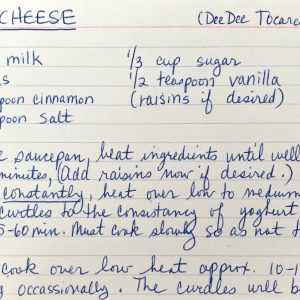 CHEESE (DeeDee Tocar
milk 1/3 cup sugar
s 1/2 teaspoon vanilla
poon cinnamon (raisins if desired)
poon salt
saucepan, heat ingredients until well
minutes, (Add raisins now if desired.)
constantly, heat over low to medium
curtles to the consistancy of yoghurt
5-60 min. Must cook slowly so as not t
cook over low heat approx. 10-1
g occassionally. The curdles will b